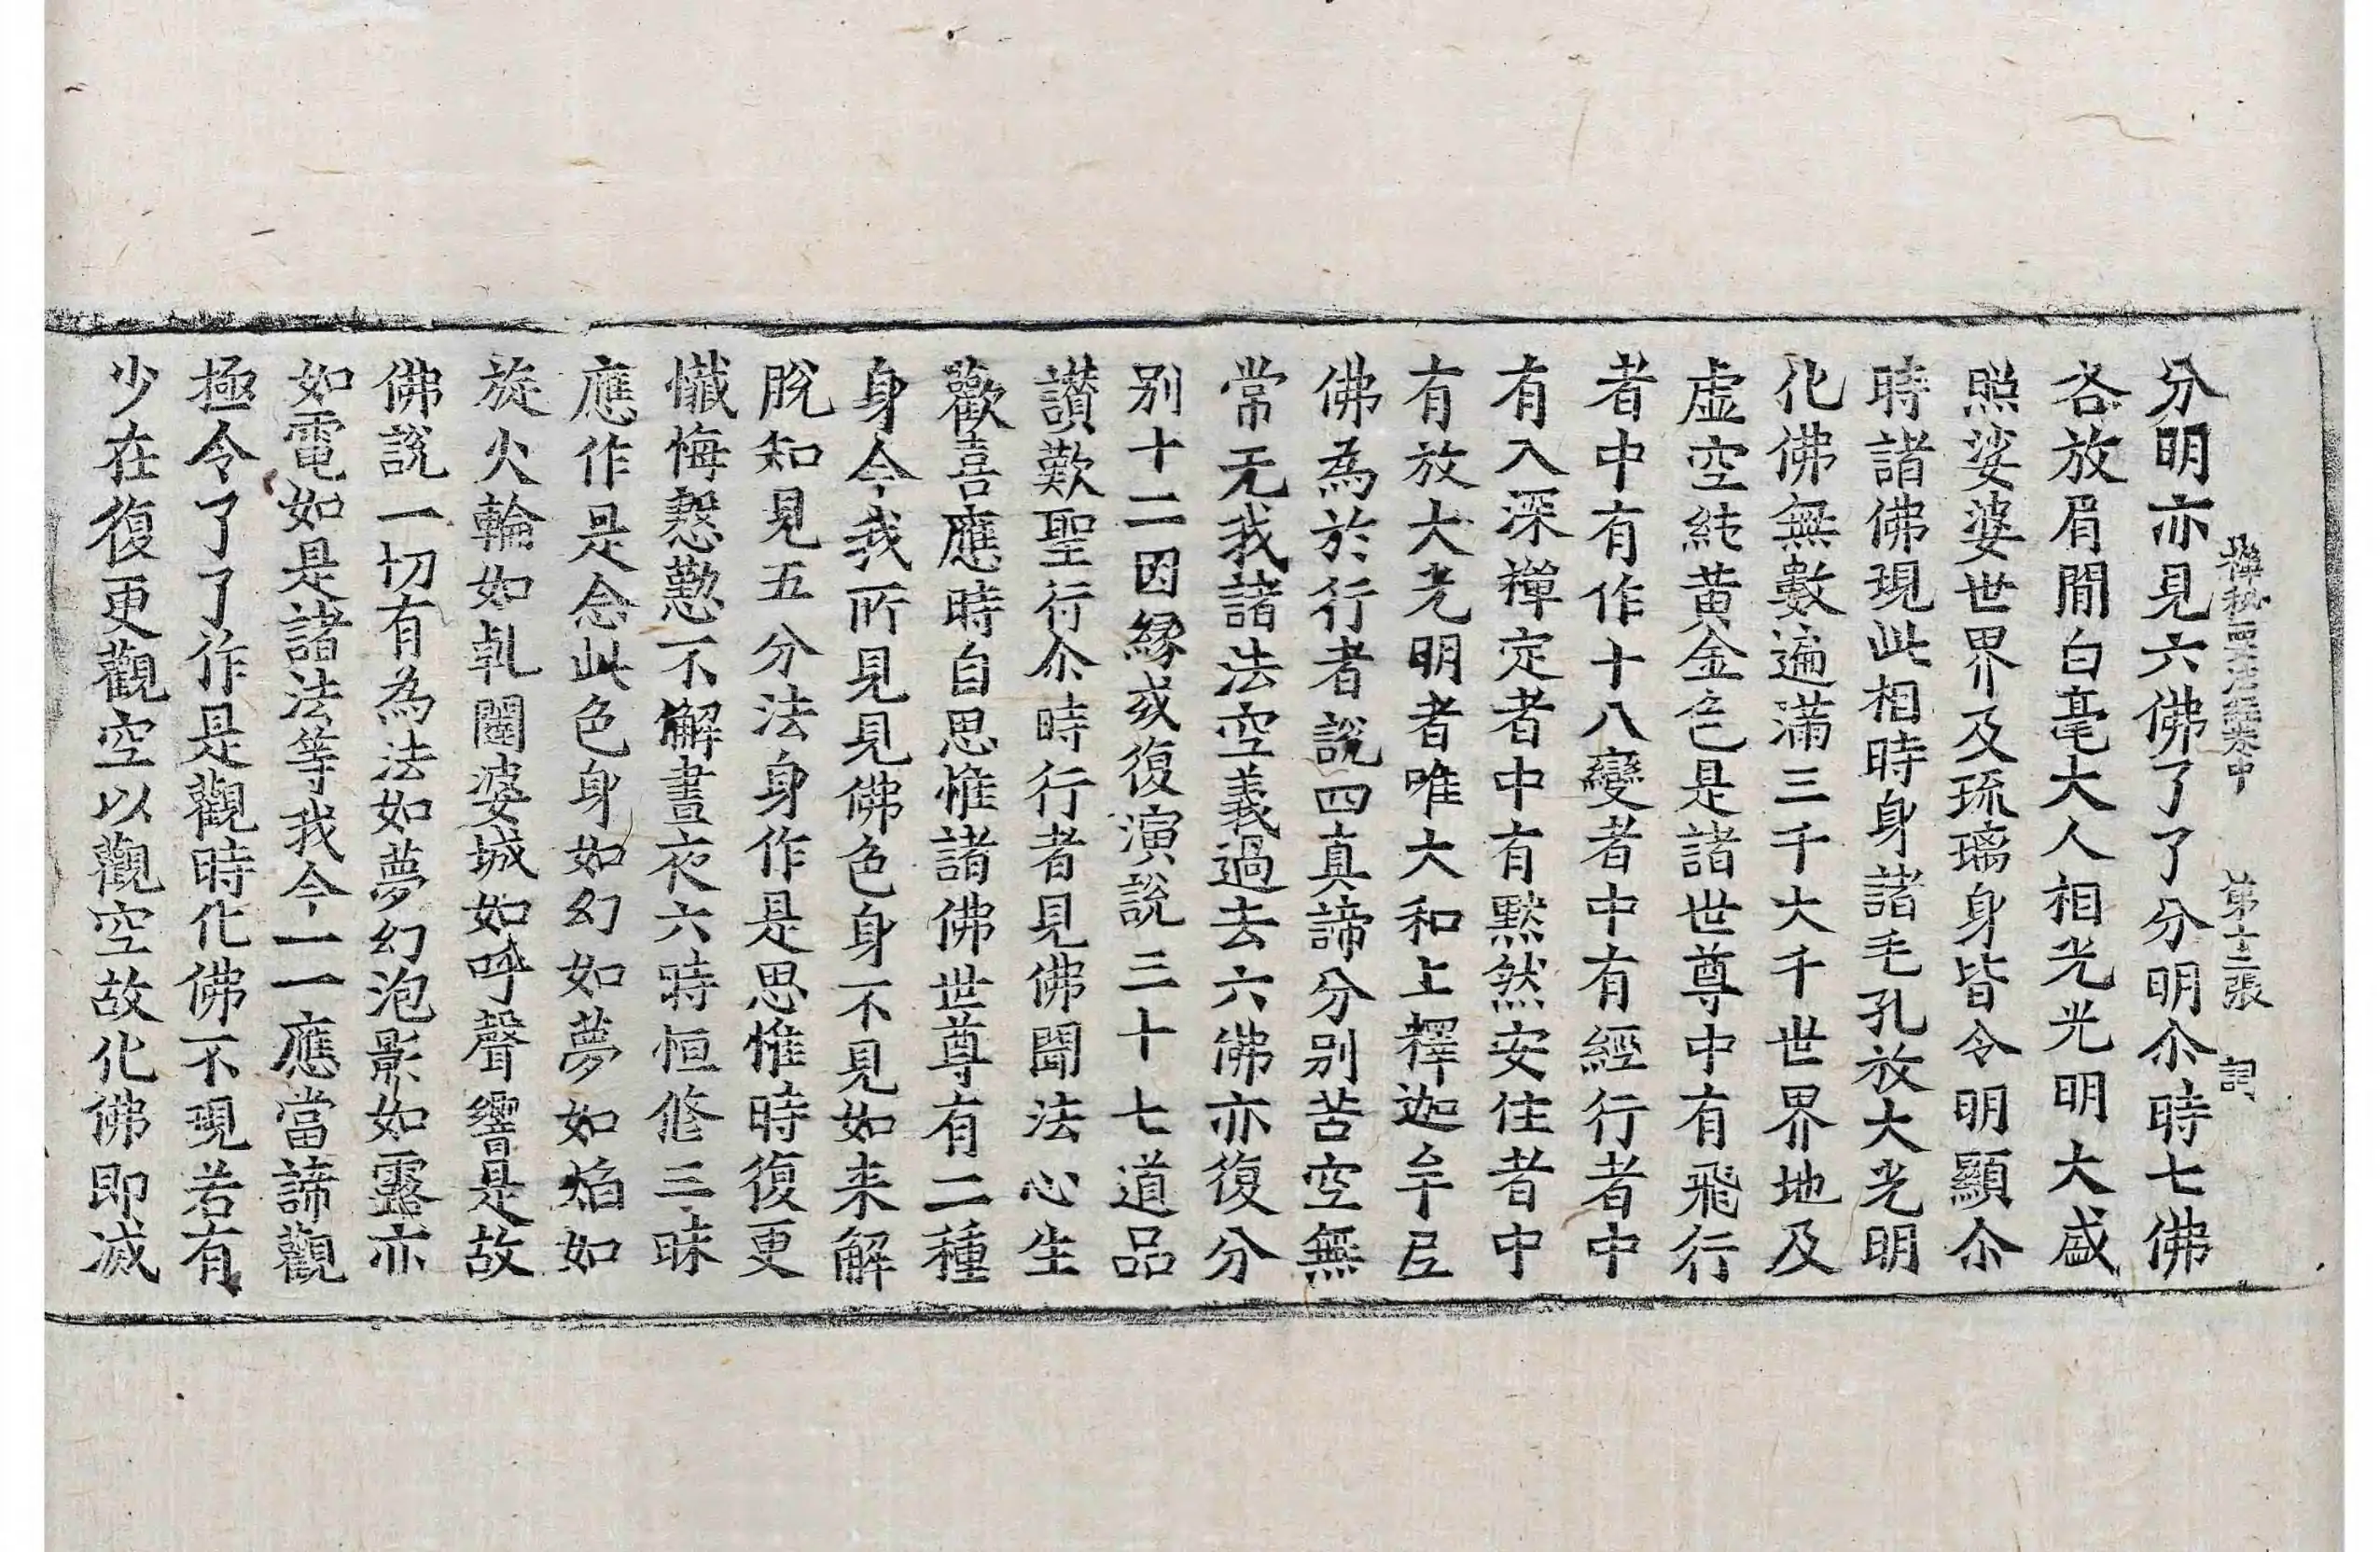 分明亦見六佛了了分明尒時七佛
禪秘要法經卷中　第十二張　詞
各放眉間白毫大人相光光明大盛
照娑婆世界及琉璃身皆令明顯尒
時諸佛現此相時身諸毛孔放大光明
化佛無數遍滿三千大千世界地及
虛空純黃金色是諸世尊中有飛行
者中有作十八變者中有經行者中
有入深禪定者中有默然安住者中
有放大光明者唯大和上釋迦牟尼
佛為於行者說四真諦分別苦空無
常无我諸法空義過去六佛亦復分
別十二因緣或復演說三十七道品
讃歎聖行尒時行者見佛聞法心生
歡喜應時自思惟諸佛世尊有二種
身今我所見見佛色身不見如来解
脫知見五分法身作是思惟時復更
懺悔慇懃不懈晝夜六時恒修三昧
應作是念此色身如幻如夢如焰如
旋火輪如乹闥婆城如呼聲響是故
佛說一切有為法如夢幻泡影如露亦
如電如是諸法等我今一一應當諦觀
極令了了作是觀時化佛不現若有
少在復更觀空以觀空故化佛即滅